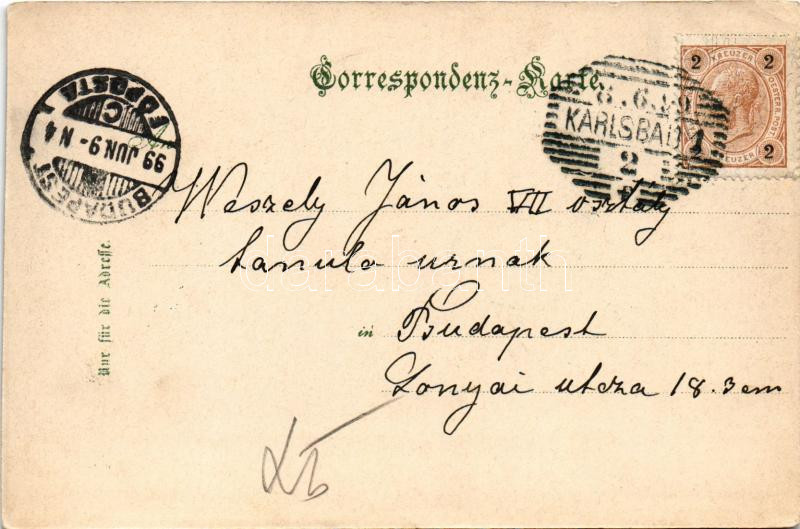 Correspondenz-Karte.
2 KREUZER 2
OESTERR. POST
KREUZER 2
8.6.99
KARLSBAD 1
2
BUDAPEST
99 JUN. 9 - N 4
C
FŐPOSTA
An
Weszely János VII osztály
tanuló urnak
in Budapest
Lonyai utcza 18. 3em
Nur für die Adresse.
darabanth